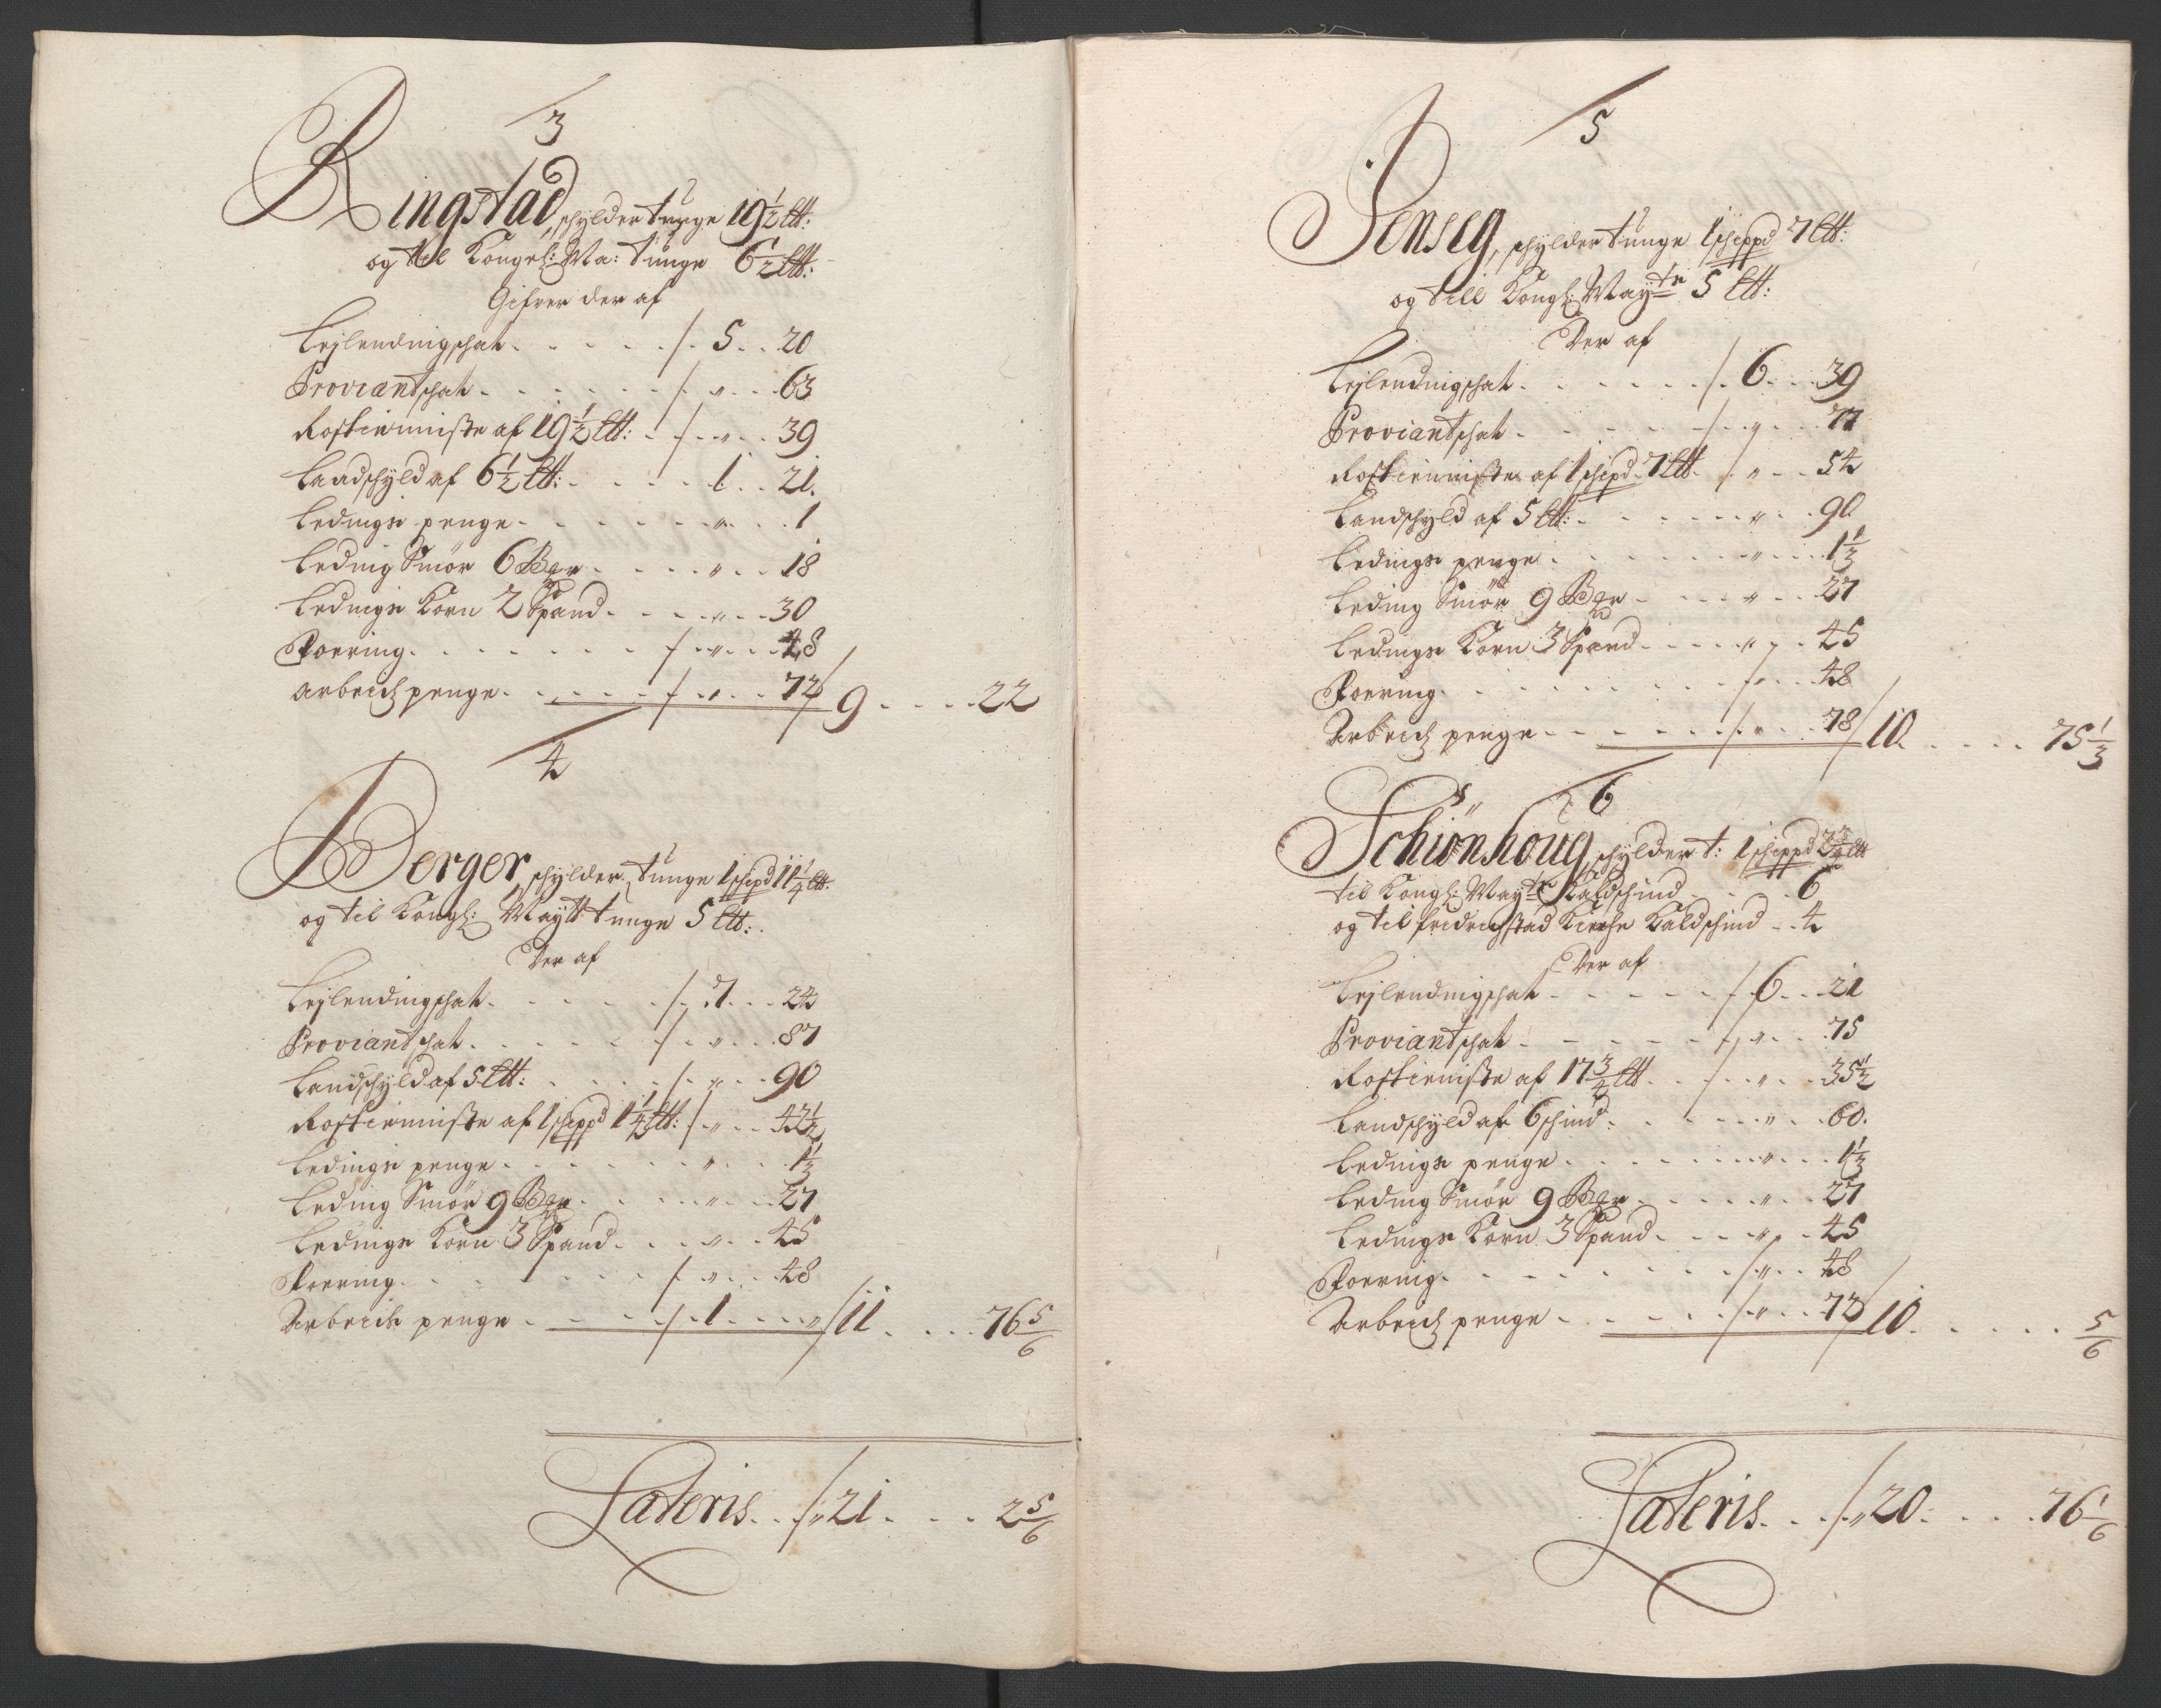 3
Ringstad, schylder tunge 19½ Ltt:
og til Kongel: Ma: tunge 6½ Ltt:
Gifver der af
Leylendingschat . . . . . /. 5 . . 20
Proviantschat . . . . . . /. „ . . 63
Rostienniste af 19½ Ltt: . /. „ . . 39
Landschyld af 6½ Ltt: . . . . 1 . . 21.
Ledings penge . . . . . . „ . . . 1
Leding Smör 6 Bgr . . . . „ . . 18
Ledings Korn 2 Spand . . . . „ . . 30
Foering . . . . . . . /. „ . . 48
Arbeidz penge . . . . . . /. „ . . 72 / 9 . . . . 22
4
Berger, schylder tunge 1 schpd 11¼ Ltt.
og til Kongl: Maytt: tunge 5 Ltt:
Der af
Leylendingschat . . . . . /. 7 . . 24
Proviantschat . . . . . . /. „ . . 87
Landschyld af 5 Ltt: . . . . /. „ . . 90
Rostienniste af 1 scheppd 1¼ Ltt: /. „ . . 42½
Ledings penge . . . . . . „ . . . 1⅓
Leding Smör 9 Bgr . . . . „ . . 27
Ledings Korn 3 Spand . . . „ . . 45
Foering . . . . . . . /. „ . . 48
Arbeids penge . . . . . /. 1 . . . „ / 11 . . . . 76 5/6
Lateris . . /„ 21 . . . . 2 5/6
5
Jenseg, schylder tunge 1 scheppd 7 Ltt:
og till Kongl: Maytz 5 Ltt:
Der af
Leylendingschat . . . . . . /. 6 . . 39
Proviantschat . . . . . . /. „ . . 77
Rostienniste af 1 schpd 7 Ltt . /. „ . . 54
Landschyld af 5 Ltt: . . . . . „ . . 90
Ledings penge . . . . . . „ . . . 1⅓
Leding Smör 9 Bgr . . . . „ . . 27
Ledings Korn 3 Spand . . . . „ . . 45
Foering . . . . . . . . /. „ . . 48
Arbeidz penge . . . . . . /. „ . . 78 / 10 . . . . 75⅓
6
Schiönhoug, schylder t: 1 scheppd 2¾ Ltt
til Kongl: Maytz Kaldschind . . . 6
og til fridrichstad Kirche Kaldschind . . 4
Der af
Leylendingschat . . . . . . /. 6 . . 21
Proviantschat . . . . . . /. „ . . 75
Rostienniste af 17¾ Ltt . . /. „ . . 35½
Landschyld af 6 schind . . . . . „ . . 60.
Ledings penge . . . . . . . „ . . . 1⅓
Leding Smör 9 Bgr . . . . . „ . . 27
Ledings Korn 3 Spand . . . . „ . . 45
Foering . . . . . . . . /. „ . . 48
Arbeidz penge . . . . . . /. „ . . 72 / 10 . . . . . 5/6
Lateris . . . /„ 20 . . . . 76 1/6